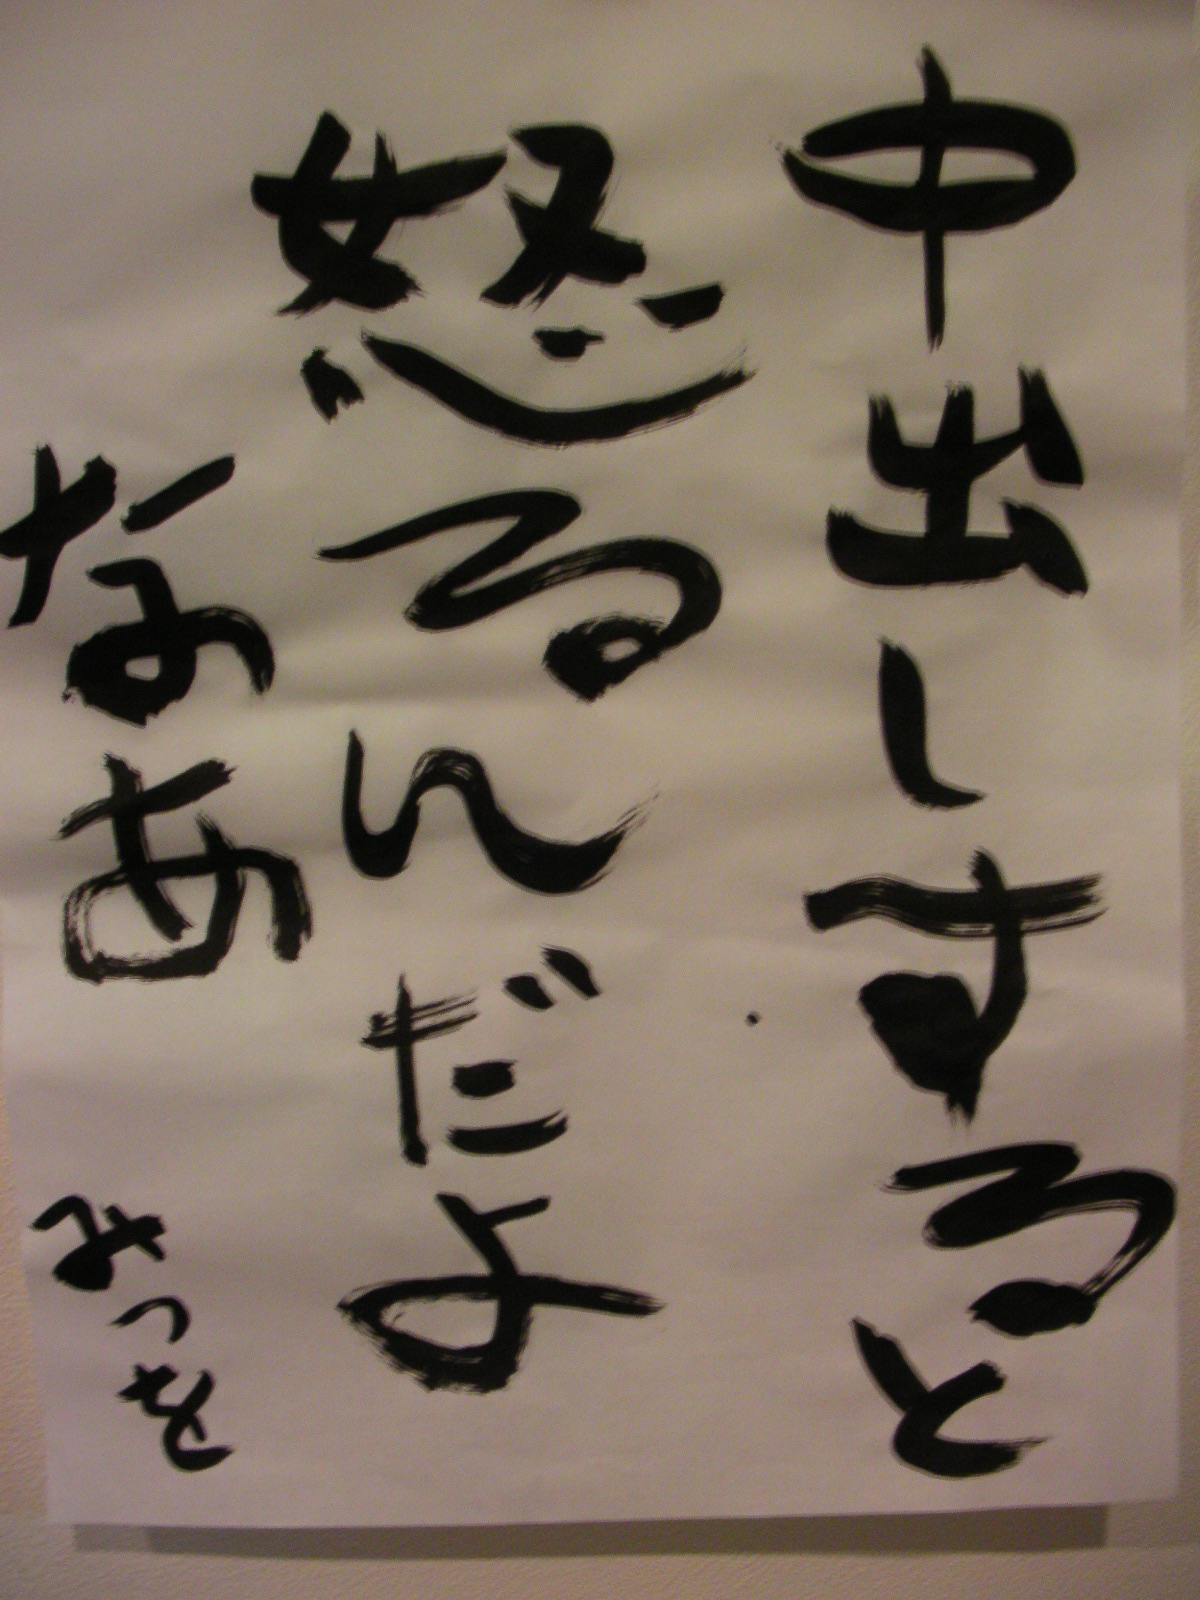 中出しすると
怒るんだよ
なあ
みつを